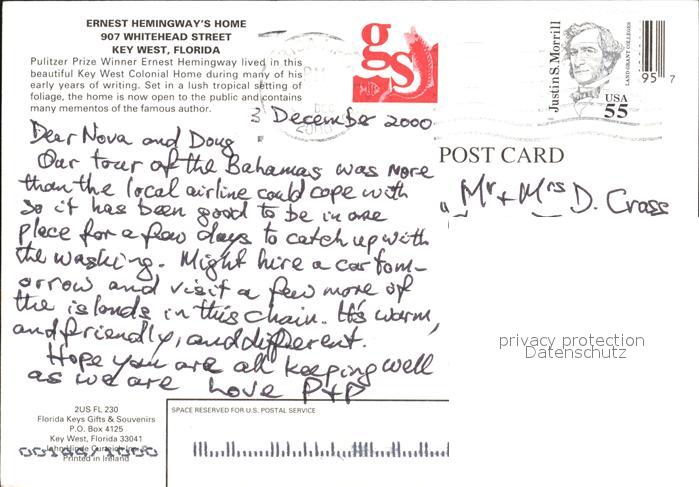 ERNEST HEMINGWAY'S HOME
907 WHITEHEAD STREET
KEY WEST, FLORIDA
Pulitzer Prize Winner Ernest Hemingway lived in this
beautiful Key West Colonial Home during many of his
early years of writing. Set in a lush tropical setting of
foliage, the home is now open to the public and contains
many mementos of the famous author.
gs
Justin S. Morrill
LAND GRANT COLLEGES
USA
55
95 7
3 December 2000
Dear Nova and Doug
Our tour of the Bahamas was more
than the local airline could cope with
so it has been good to be in one
place for a few days to catch up with
the washing. Might hire a car tom-
orrow and visit a few more of
the islands in this chain. It's warm,
and friendly, and different.
Hope you are all keeping well
as we are Love P+P
POST CARD
Mr + Mrs D. Crass
privacy protection
Datenschutz
2US FL 230
Florida Keys Gifts & Souvenirs
P.O. Box 4125
Key West, Florida 33041
Printed in Ireland
SPACE RESERVED FOR U.S. POSTAL SERVICE